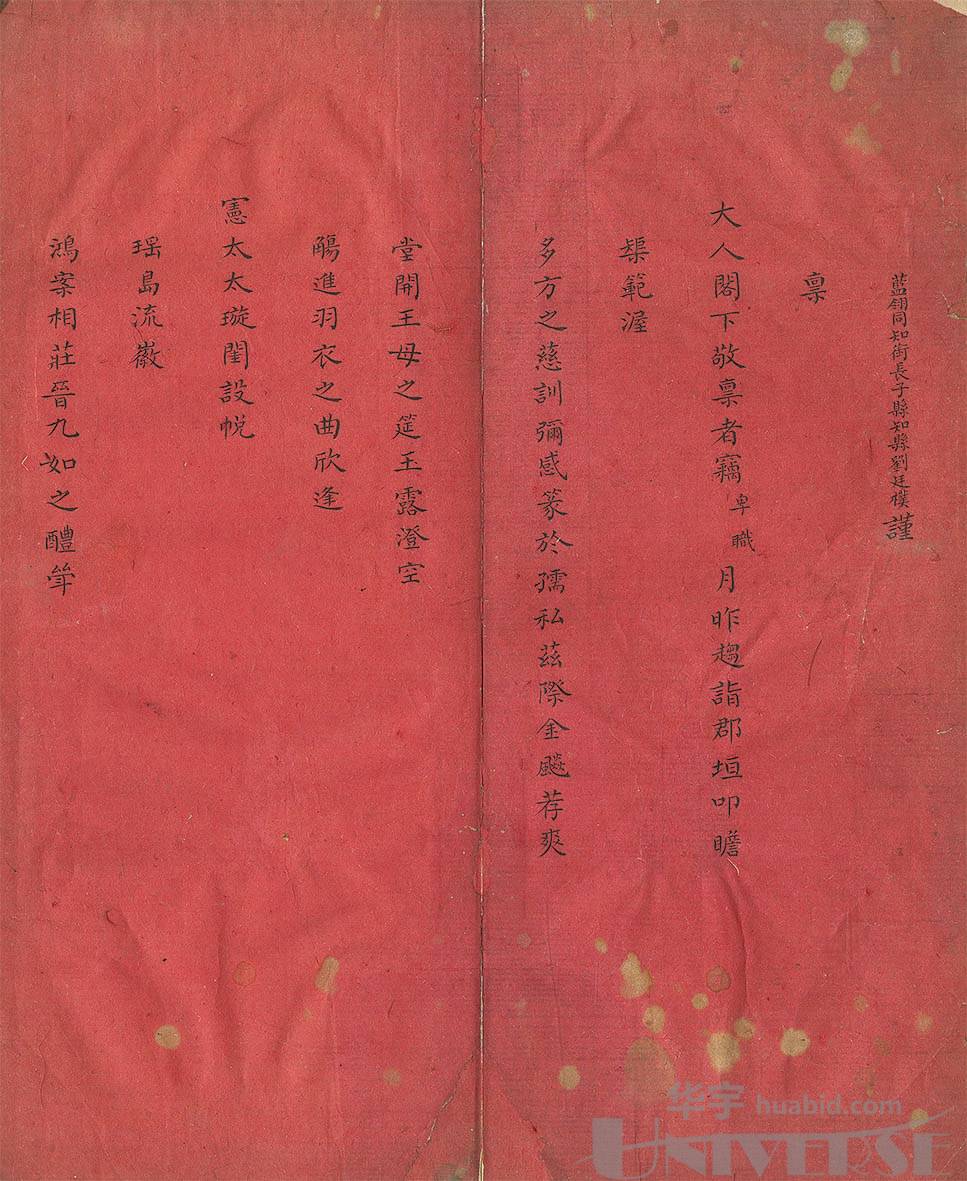 藍翎同知銜長子縣知縣劉廷樸謹
稟
大人閣下敬稟者竊卑職月昨趨詣郡垣叩瞻
榘範渥
多方之慈訓彌感篆於孺私茲際金飈荐爽
堂開王母之筵玉露澄空
觴進羽衣之曲欣逢
憲太太璇閨設帨
瑤島流徽
鴻案相莊晉九如之醴斚
华宇 huabid.com
UNIVERSE